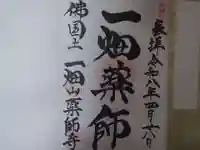 奉拝 令和八年四月
一畑薬師
佛国土 一畑山薬師寺